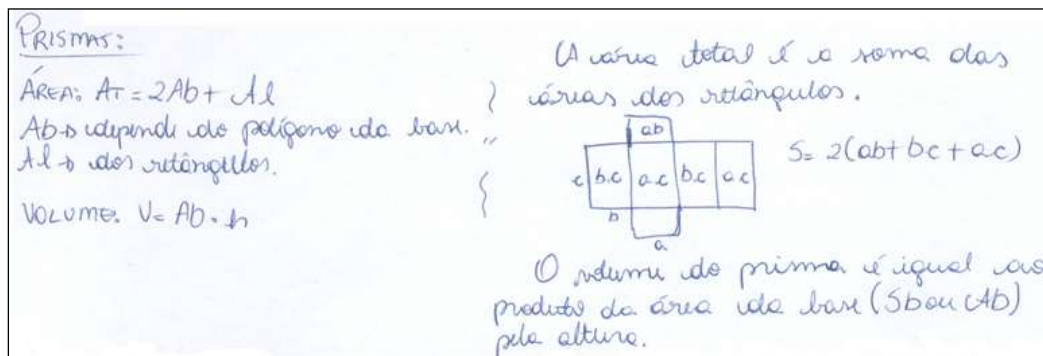 PRISMAS:
ÁREA: AT = 2Ab + Al
Ab → depende do polígono da base.
Al → dos retângulos.
VOLUME. V = Ab . h
A área total é a soma das
áreas dos retângulos.
ab
c b.c a.c b.c a.c
b
a
S = 2(ab + bc + a.c)
O volume do prisma é igual ao
produto da área da base (Sb ou Ab)
pela altura.